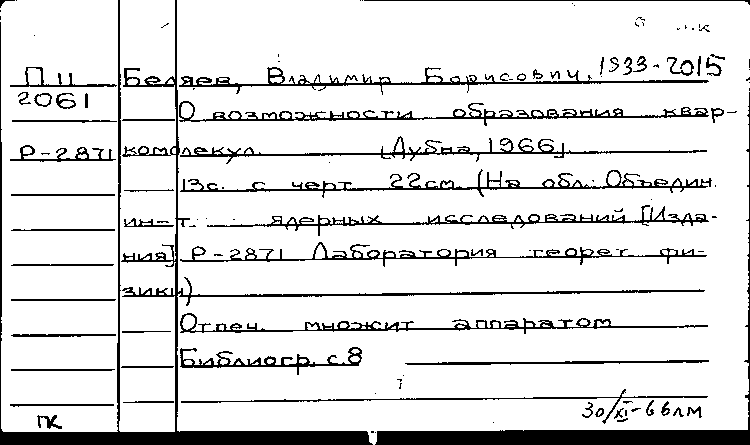 П 11 Беляев, Владимир Борисович, 1933-2015
2061
О возможности образования квар-
Р-2871 комолекул. [Дубна, 1966]
13с. с черт. 22см. (На обл.: Объедин.
ин-т. ядерных исследований [Изда-
ния] Р-2871 Лаборатория теорет. фи-
зики)
Отпеч. множит аппаратом
Библиогр. с.8
30/XI-66 лм
ПК